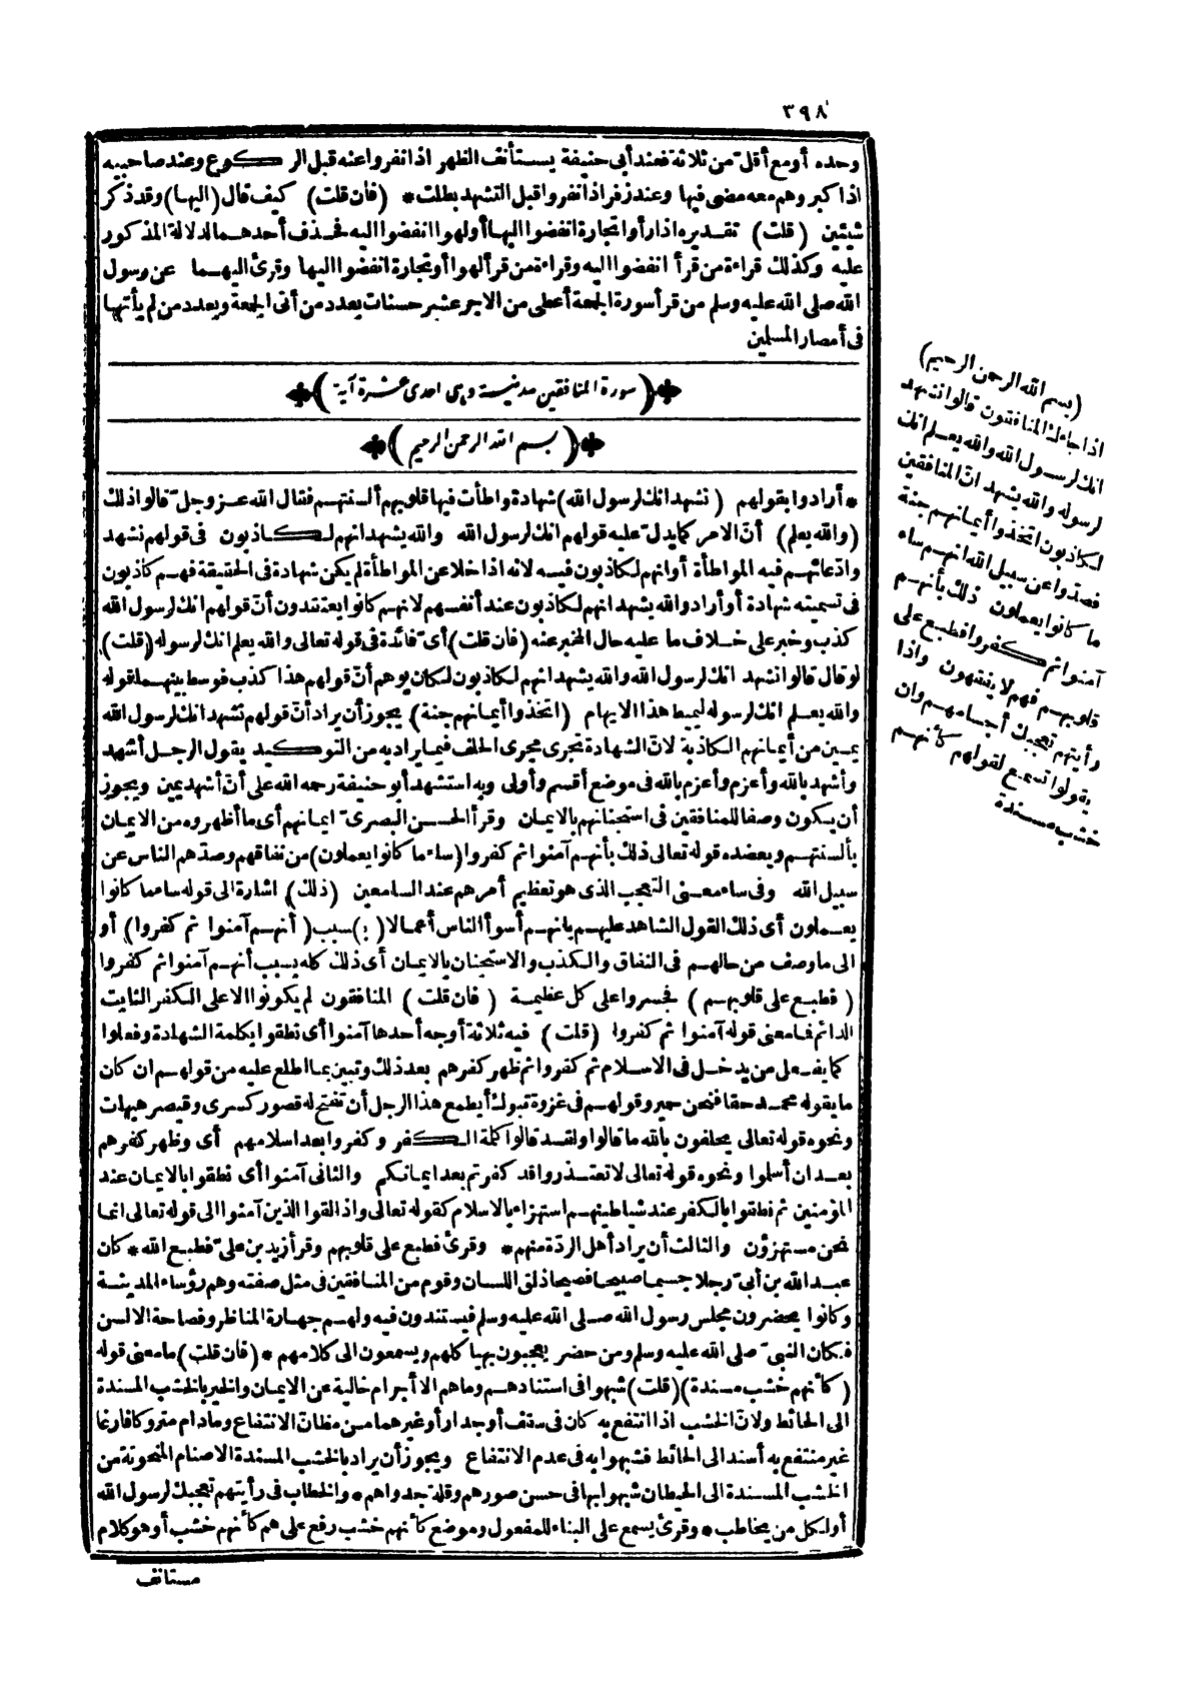 ٣٩٨
وحده أومع أقل من ثلاثة فعند أبى حنيفة يستأنف الظهر اذا نفروا عنه قبل الركوع وعند صاحبيه
اذا كبر وهم معه مضى فيها وعند زفر اذا نفروا قبل التشهد بطلت * (فان قلت) كيف قال (اليها) وقد ذكر
شيئين (قلت) تقديره اذا رأوا تجارة انفضوا اليها أولهوا انفضوا اليه فحذف أحدهما لدلالة المذكور
عليه وكذلك قراءة من قرأ انفضوا اليه وقراءة من قرأ لهوا أو تجارة انفضوا اليها وقرئ اليهما عن رسول
الله صلى الله عليه وسلم من قرأ سورة الجمعة أعطى من الاجر عشر حسنات بعدد من أتى الجمعة وبعدد من لم يأتها
فى أمصار المسلمين
(سورة المنافقين مدنية وهى احدى عشرة آية)
(بسم الله الرحمن الرحيم)
* أرادوا بقولهم (نشهد انك لرسول الله) شهادة واطأت فيها قلوبهم ألسنتهم فقال الله عز وجل قالوا ذلك
(والله يعلم) أن الامر كما يدل عليه قولهم انك لرسول الله والله يشهد انهم لكاذبون فى قولهم نشهد
وادعائهم فيه المواطأة أو انهم لكاذبون فيه لانه اذا خلا عن المواطأة لم يكن شهادة فى الحقيقة فهم كاذبون
فى تسميته شهادة أو أراد والله يشهد انهم لكاذبون عند أنفسهم لانهم كانوا يعتقدون أن قولهم انك لرسول الله
كذب وخبر على خلاف ما عليه حال المخبر عنه (فان قلت) أى فائدة فى قوله تعالى والله يعلم انك لرسوله (قلت)
لو قال قالوا نشهد انك لرسول الله والله يشهد انهم لكاذبون لكان يوهم أن قولهم هذا كذب فوسط بينهما قوله
والله يعلم انك لرسوله ليميط هذا الايهام (اتخذوا أيمانهم جنة) يجوز أن يراد أن قولهم نشهد انك لرسول الله
يمين من أيمانهم الكاذبة لان الشهادة تجرى مجرى الحلف فيما يراد به من التوكيد يقول الرجل أشهد
وأشهد بالله وأعزم وأعزم بالله فى موضع أقسم وأولى وبه استشهد أبو حنيفة رحمه الله على أن أشهد يمين ويجوز
أن يكون وصفا للمنافقين فى استجنانهم بالايمان وقرأ الحسن البصرى ايمانهم أى ما أظهروه من الايمان
بألسنتهم ويعضده قوله تعالى ذلك بأنهم آمنوا ثم كفروا (ساء ما كانوا يعملون) من نفاقهم وصدهم الناس عن
سبيل الله وفى ساء معنى التعجب الذى هو تعظيم أمرهم عند السامعين (ذلك) اشارة الى قوله ساء ما كانوا
يعملون أى ذلك القول الشاهد عليهم بانهم أسوأ الناس أعمالا (ب) سبب (أنهم آمنوا ثم كفروا) أو
الى ما وصف من حالهم فى النفاق والكذب والاستجنان بالايمان أى ذلك كله بسبب أنهم آمنوا ثم كفروا
(فطبع على قلوبهم) فجسروا على كل عظيمة (فان قلت) المنافقون لم يكونوا الا على الكفر الثابت
الدائم فما معنى قوله آمنوا ثم كفروا (قلت) فيه ثلاثة أوجه أحدها آمنوا أى نطقوا بكلمة الشهادة وفعلوا
كما يفعل من يدخل فى الاسلام ثم كفروا ثم ظهر كفرهم بعد ذلك وتبين بما اطلع عليه من قولهم ان كان
ما يقوله محمد حقا فنحن حمير وقولهم فى غزوة تبوك أيطمع هذا الرجل أن تفتح له قصور كسرى وقيصر هيهات
ونحوه قوله تعالى يحلفون بالله ما قالوا ولقد قالوا كلمة الكفر وكفروا بعد اسلامهم أى وظهر كفرهم
بعد ان أسلموا ونحوه قوله تعالى لا تعتذروا قد كفرتم بعد ايمانكم والثانى آمنوا أى نطقوا بالايمان عند
المؤمنين ثم نطقوا بالكفر عند شياطينهم استهزاء بالاسلام كقوله تعالى واذا لقوا الذين آمنوا الى قوله تعالى انما
نحن مستهزؤن والثالث أن يراد أهل الردة منهم * وقرئ فطبع على قلوبهم وقرأ زيد بن على فطبع الله * كان
عبد الله بن أبى رجلا جسيما صبيحا فصيحا ذلق اللسان وقوم من المنافقين فى مثل صفته وهم رؤساء المدينة
وكانوا يحضرون مجلس رسول الله صلى الله عليه وسلم فيستندون فيه ولهم جهارة المناظر وفصاحة الالسن
فكان النبى صلى الله عليه وسلم ومن حضر يعجبون بهياكلهم ويسمعون الى كلامهم * (فان قلت) ما معنى قوله
(كأنهم خشب مسندة) (قلت) شبهوا فى استنادهم وما هم الا أجرام خالية عن الايمان والخير بالخشب المسندة
الى الحائط ولان الخشب اذا انتفع به كان فى سقف أو جدار أو غيرهما من مظان الانتفاع وما دام متروكا فارغا
غير منتفع به أسند الى الحائط فشبهوا به فى عدم الانتفاع ويجوز أن يراد بالخشب المسندة الاصنام المنحوتة من
الخشب المسندة الى الحيطان شبهوا بها فى حسن صورهم وقلة جدواهم * والخطاب فى رأيتهم تعجبك لرسول الله
أو لكل من يخاطب * وقرئ يسمع على البناء للمفعول وموضع كأنهم خشب رفع على هم كأنهم خشب أو هو كلام
مستانف
(بسم الله الرحمن الرحيم)
اذا جاءك المنافقون قالوا نشهد
انك لرسول الله والله يعلم انك
لرسوله والله يشهد ان المنافقين
لكاذبون اتخذوا أيمانهم جنة
فصدوا عن سبيل الله انهم ساء
ما كانوا يعملون ذلك بأنهم
آمنوا ثم كفروا فطبع على
قلوبهم فهم لا يفقهون واذا
رأيتهم تعجبك أجسامهم وان
يقولوا تسمع لقولهم كأنهم
خشب مسندة